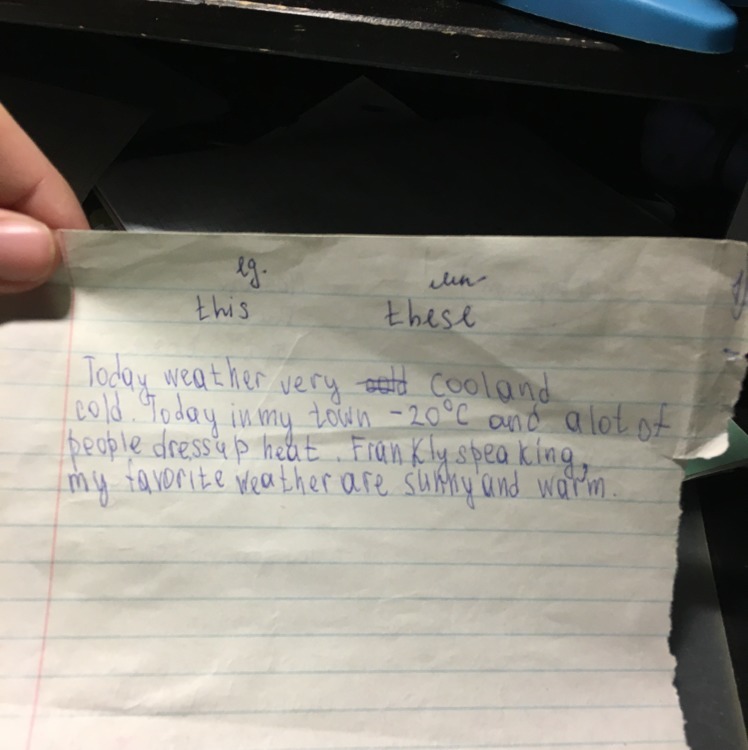 ед. мн
this these
Today weather very cold cool and
cold. Today in my town -20°C and a lot of
people dress up heat. Frankly speaking,
my favorite weather are sunny and warm.